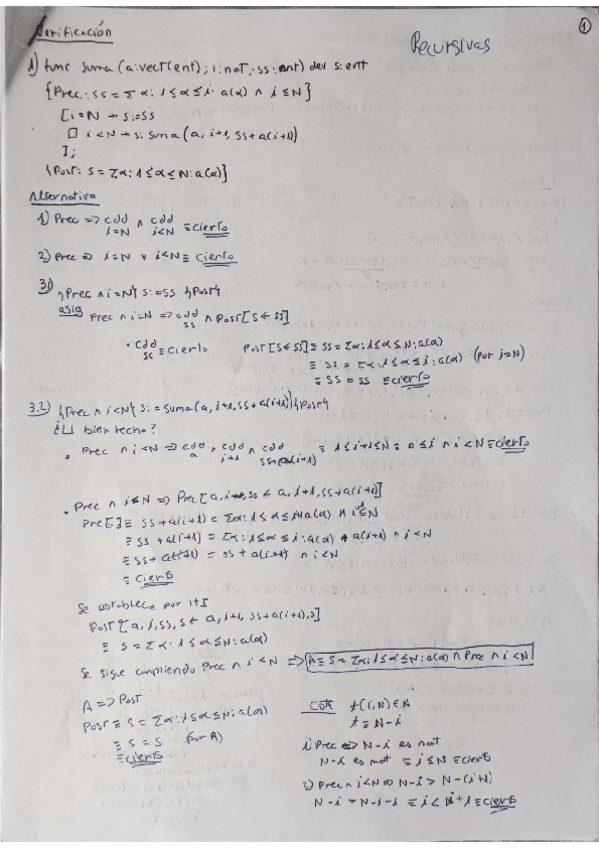 Verificación
①
Recursivas
1) func suma (a:vect(ent); i:nat; ss:ent) dev s:ent
{Prec: ss = Σα: 1≤α≤i: a(α) ∧ i≤N}
[i=N → s:=ss
□ i<N → s: suma(a, i+1, ss+a(i+1))
];
{Post: s = Σα: 1≤α≤N: a(α)}
Alternativa
1) Prec => cdd i=N ∧ cdd i<N ≡ cierto
2) Prec => i=N ∨ i<N ≡ cierto
3.1) {Prec ∧ i=N} s:=ss {Post}
asig Prec ∧ i=N => cdd ss ∧ Post[s←ss]
· cdd ss ≡ cierto Post[s←ss] ≡ ss = Σα: 1≤α≤N: a(α)
≡ ss = Σα: 1≤α≤i: a(α) (por i=N)
≡ ss = ss ≡ cierto
3.2) {Prec ∧ i<N} s: = suma(a, i+1, ss+a(i+1)) {Post}
¿LL bien hecho?
· Prec ∧ i<N => cdd a ∧ cdd i+1 ∧ cdd ss+a(i+1) ≡ 1≤i+1≤N ≡ 0≤i ∧ i<N ≡ cierto
· Prec ∧ i<N => Prec[a, i, ss ← a, i+1, ss+a(i+1)]
Prec[] ≡ ss + a(i+1) = Σα: 1≤α≤i+1: a(α) ∧ i+1≤N
≡ ss + a(i+1) = Σα: 1≤α≤i: a(α) + a(i+1) ∧ i<N
≡ ss + a(i+1) = ss + a(i+1) ∧ i<N
≡ cierto
Se establece por
Post[a, i, ss, s ← a, i+1, ss+a(i+1), s]
≡ s = Σα: 1≤α≤N: a(α)
Se sigue cumpliendo Prec ∧ i<N => A ≡ s = Σα: 1≤α≤N: a(α) ∧ Prec ∧ i<N
A => Post
Post ≡ s = Σα: 1≤α≤N: a(α)
≡ s = s (por A)
≡ cierto
Cota t(i,N) ∈ N
t ≡ N-i
1) Prec => N-i es nat
N-i es nat ≡ i≤N ≡ cierto
2) Prec ∧ i<N => N-i > N-(i+1)
N-i > N-i-1 ≡ i < i+1 ≡ cierto